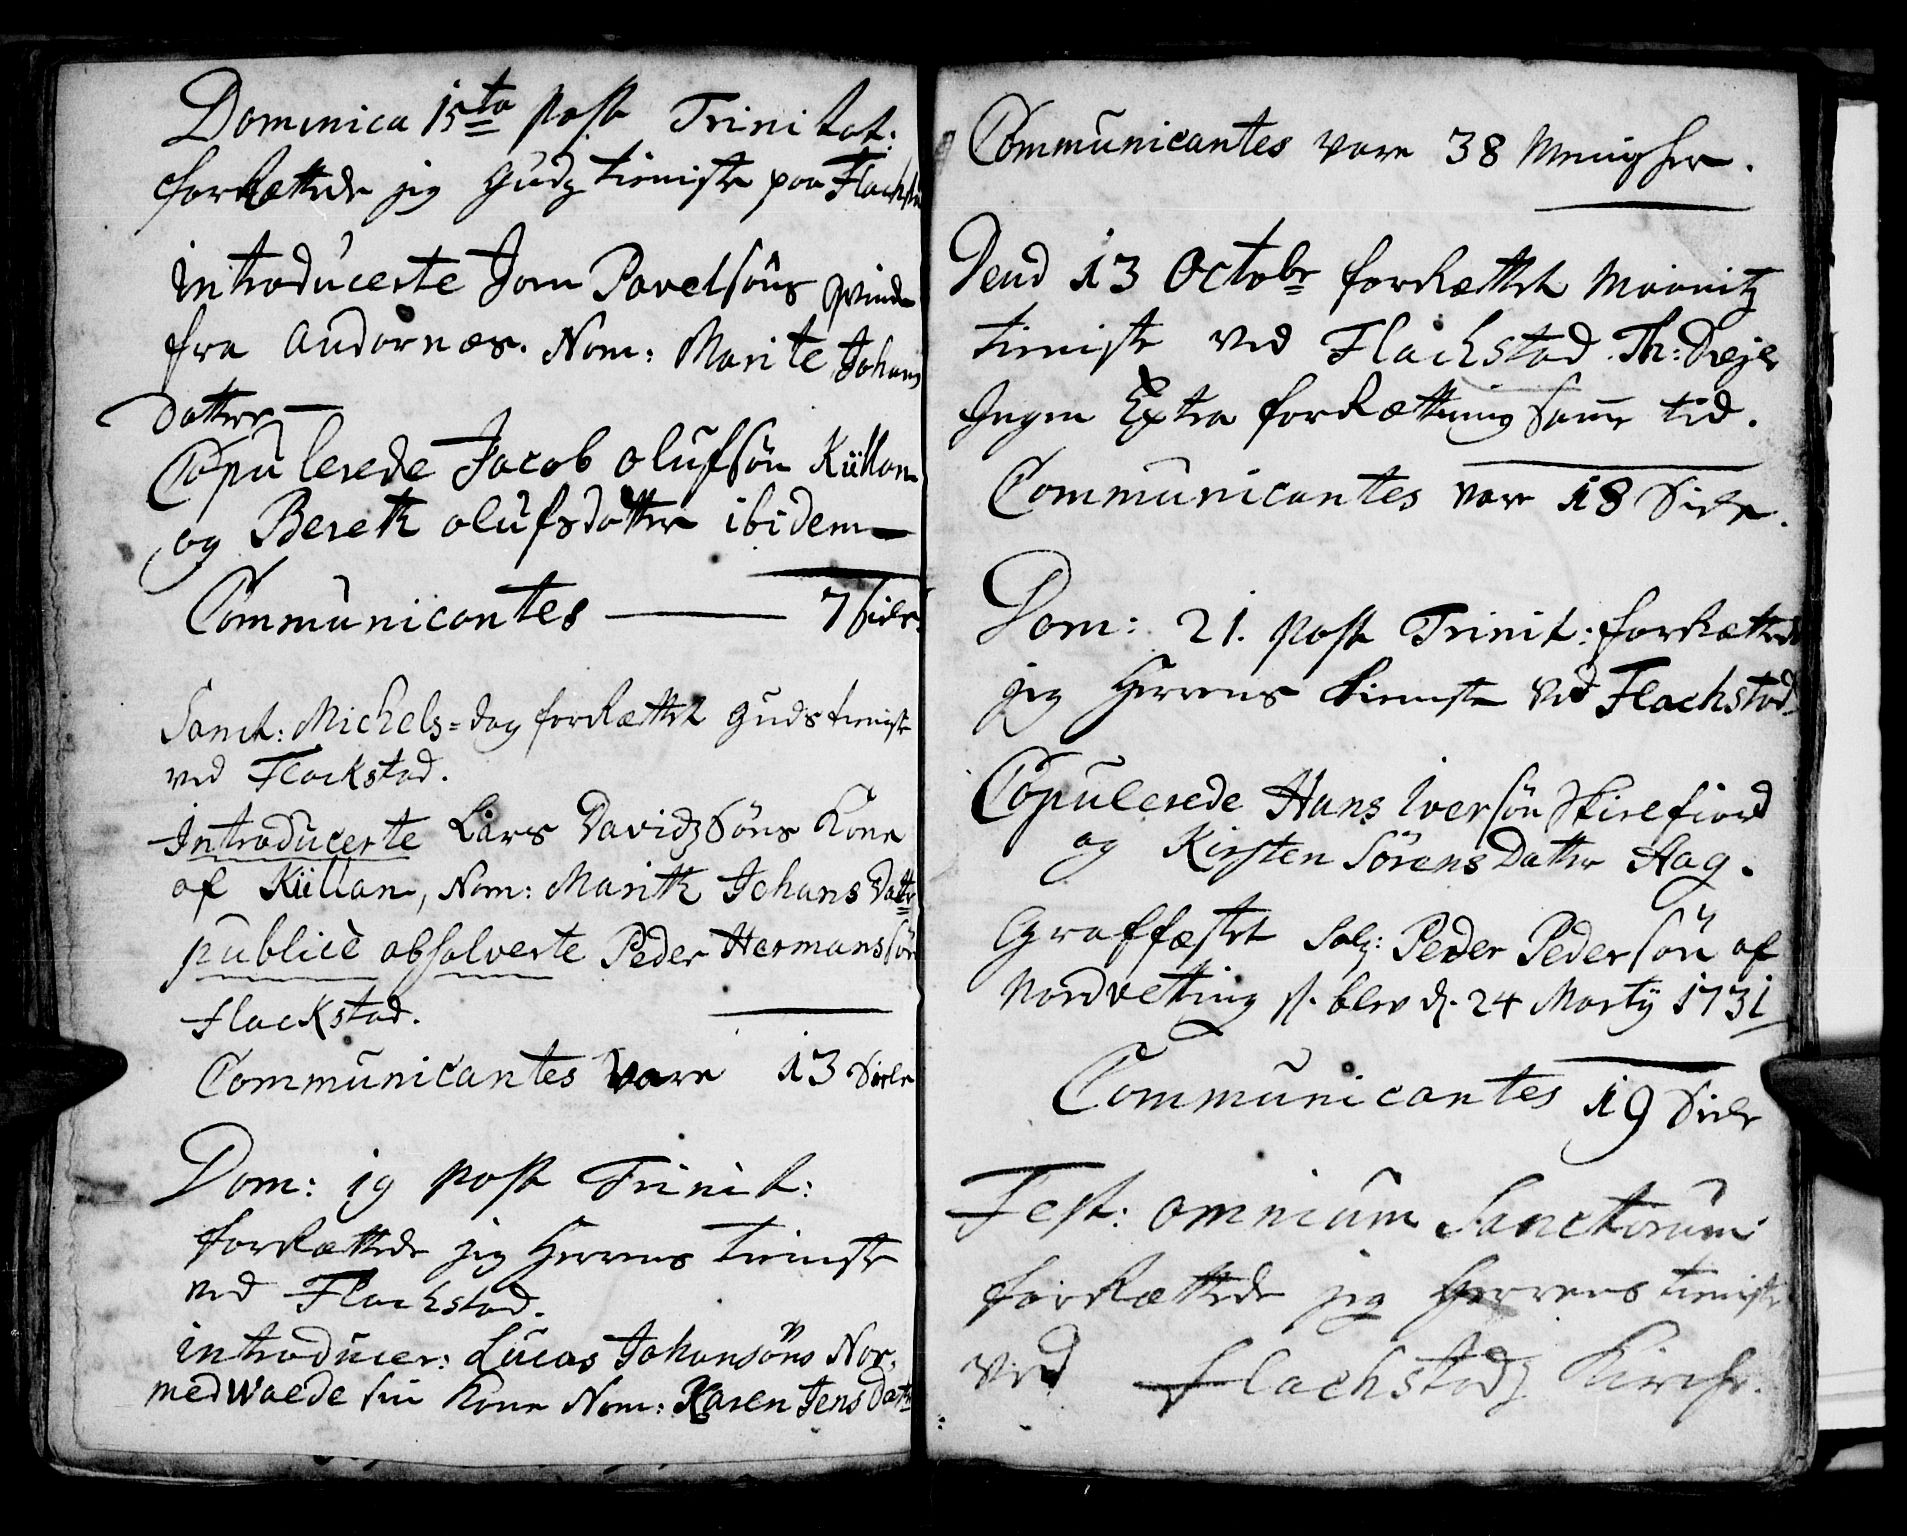 Dominica 15ta post Trinitat:
forRettede jeg Gudz tieniste paa Flachsta
introducerte Jorn Pavelsøns qvinde
fra Andornæs. Nom: Marite Johans
datter
Copulerede Jacob olufsøn Küllan
og Bereth olufsdatter ibidem
Communicantes 7 siele.
Sanct: Michels=dag forRettet Guds tienist
ved Flackstad.
Introducerte Lars Davidzsøns Kone
af Küllan, Nom: Marith Johans Datter
publicè absolverte Peder Hermanssøn
Flackstad.
Communicantes Vare 13 Siele
Dom: 19 post Trinit:
forRettede jeg Herrens tieniste
ved Flachstad.
introducer: Lucas Johansøns Nor.
medwaede sin Kone Nom: Karen Jensdatt
Communicantes vare 38 .
Dend 13 Octobr forRettet
tieniste ved Flachstad.
Ingen Extra forRettning samme tid.
Communicantes vare 18 Siele.
Dom: 21. post Trinit: forRettede
jeg Herrens tieniste ved Flachstad
Copulerede Hans Iversøn Skirefiord
og Kirsten Sørens Datter Hag.
Graffæstet Salg: Peder Pedersøn af
Nordvetting blev d. 24 Martij 1731
Communicantes 19 Siele
Fest: omnium Sanctorum
forRettede jeg Herrens tieniste
ved Flachstadz Kirche.